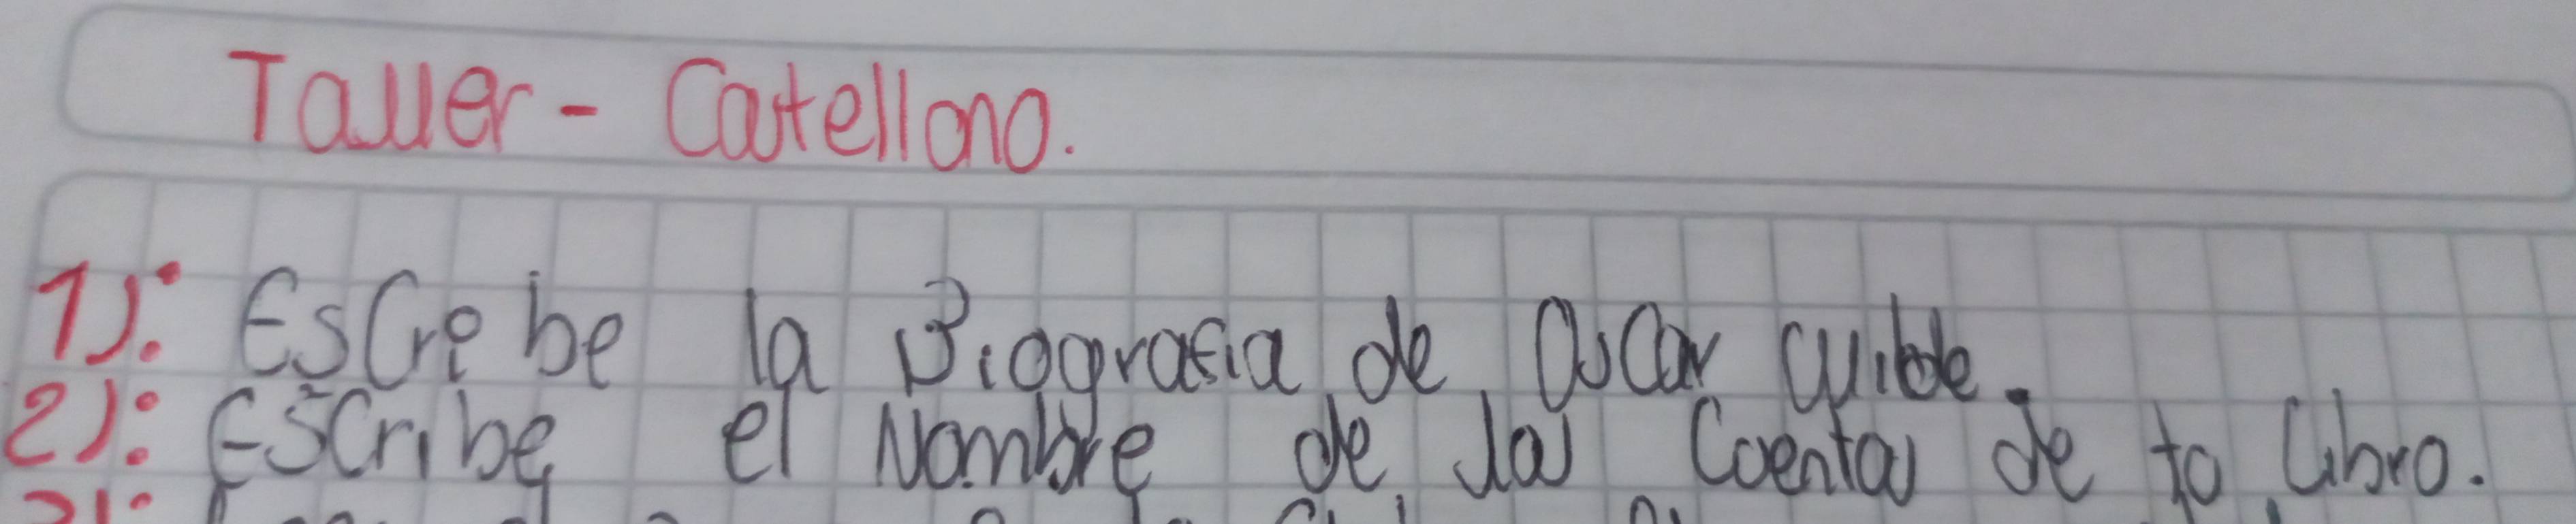 Taller - Catellano.
1): Escribe la Biografia de Oscar Wilde.
2): Escribe el Nombre de la Coenta de to Libro.